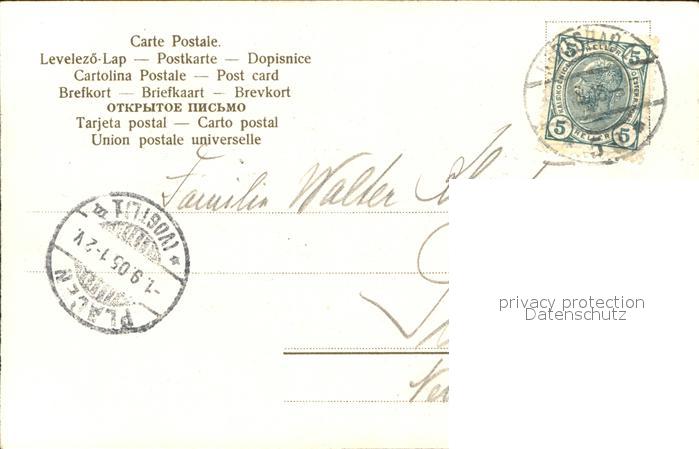 Carte Postale.
Levelező-Lap — Postkarte — Dopisnice
Cartolina Postale — Post card
Brefkort — Briefkaart — Brevkort
ОТКРЫТОЕ ПИСЬМО
Tarjeta postal — Carto postal
Union postale universelle
5 HELLER 5
5 HELLER 5
Familie Walter
PLAUEN
-1.9.05.1-2V.
* (VOGTL.)1. m
privacy protection
Datenschutz